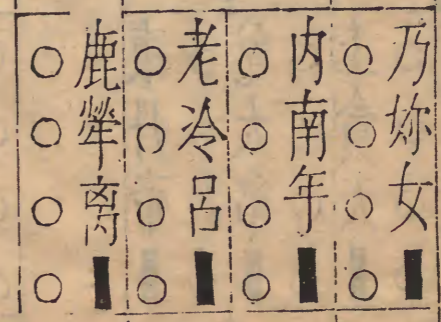 乃妳女■
○○○○
内南年■
○○○○
老冷呂■
○○○○
鹿犖离■
○○○○